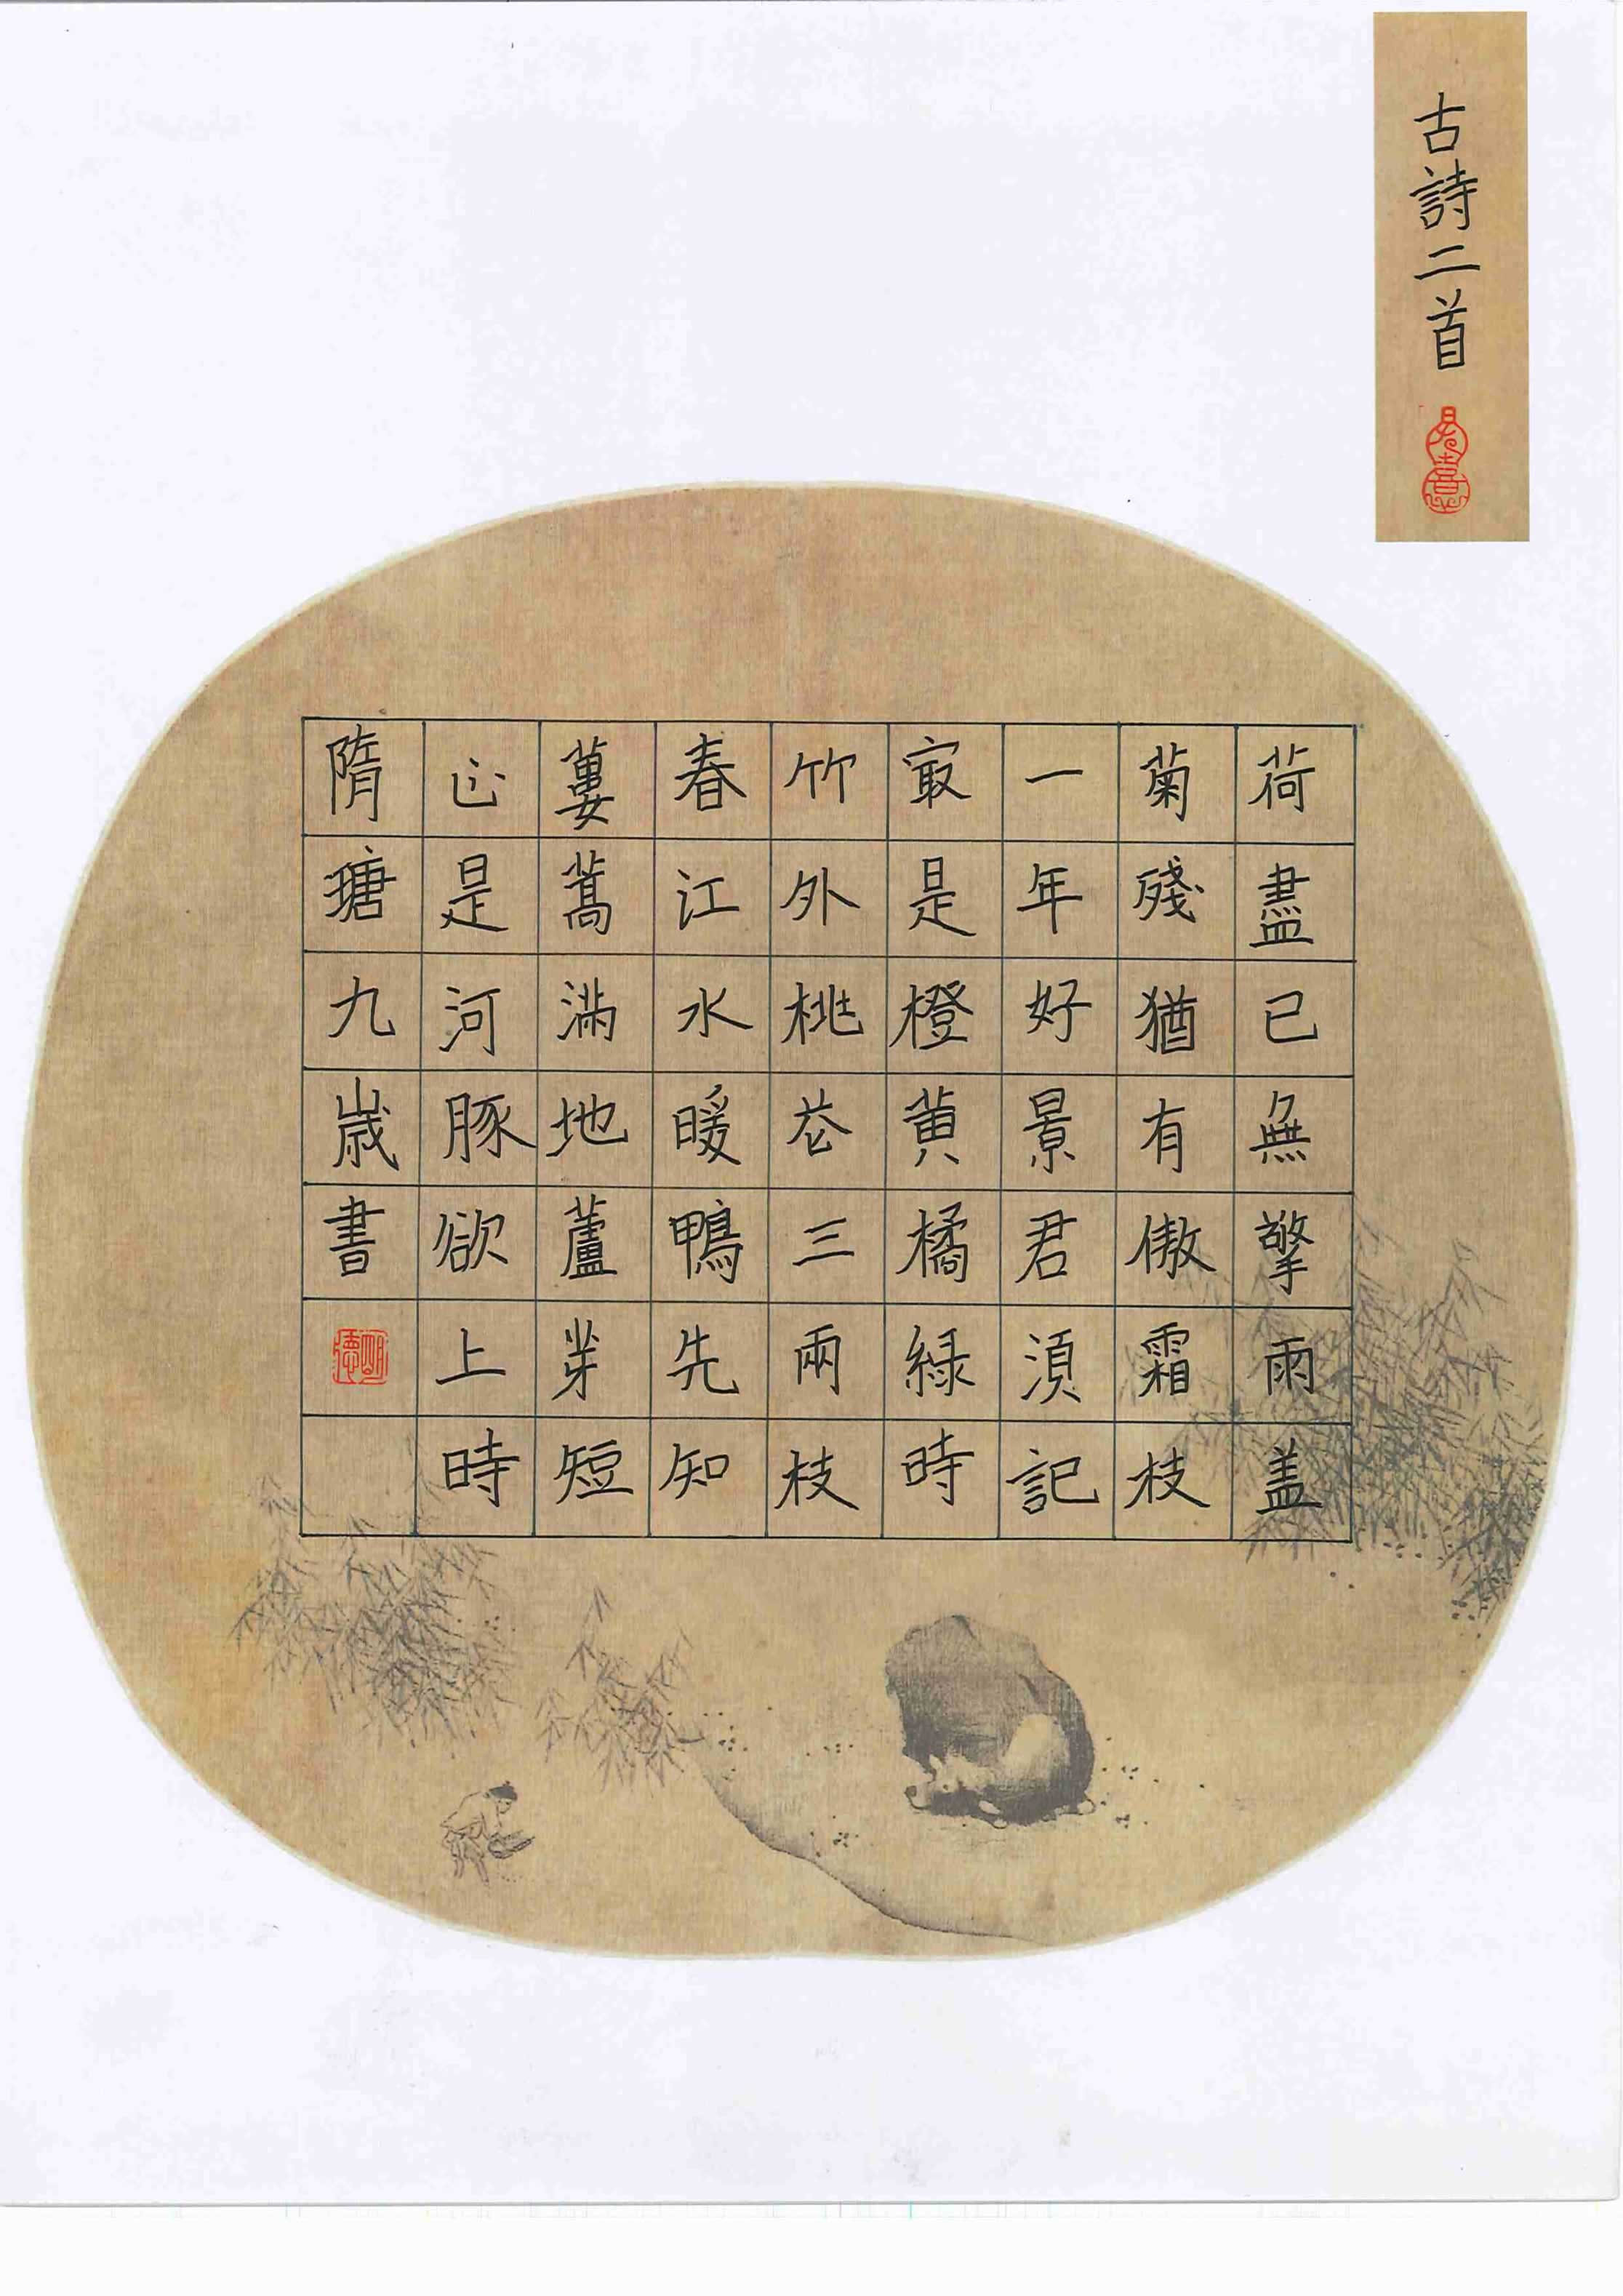 古詩二首
荷盡已無擎雨盖
菊殘猶有傲霜枝
一年好景君湏記
寂是橙黄橘緑時
竹外桃花三兩枝
春江水暖鴨先知
蔞蒿滿地蘆芽短
正是河豚欲上時
隋瑭九歳書
明德